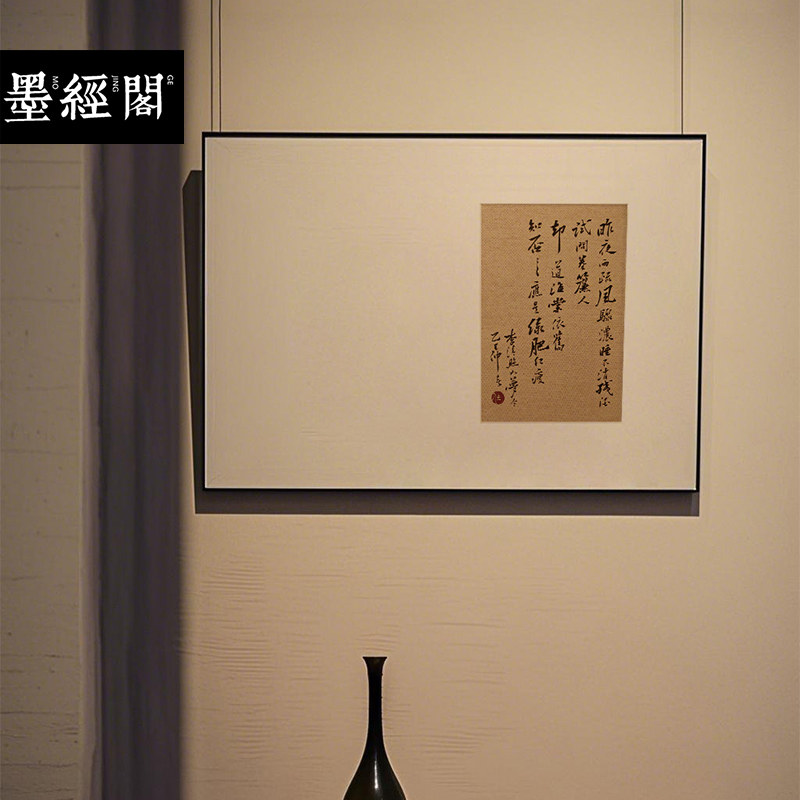 墨經閣
MO JING GE
昨夜雨疏風驟濃睡不消殘酒
試問卷簾人
却道海棠依舊
知否〻〻應是綠肥紅瘦
李清照如夢令
乙巳仲春